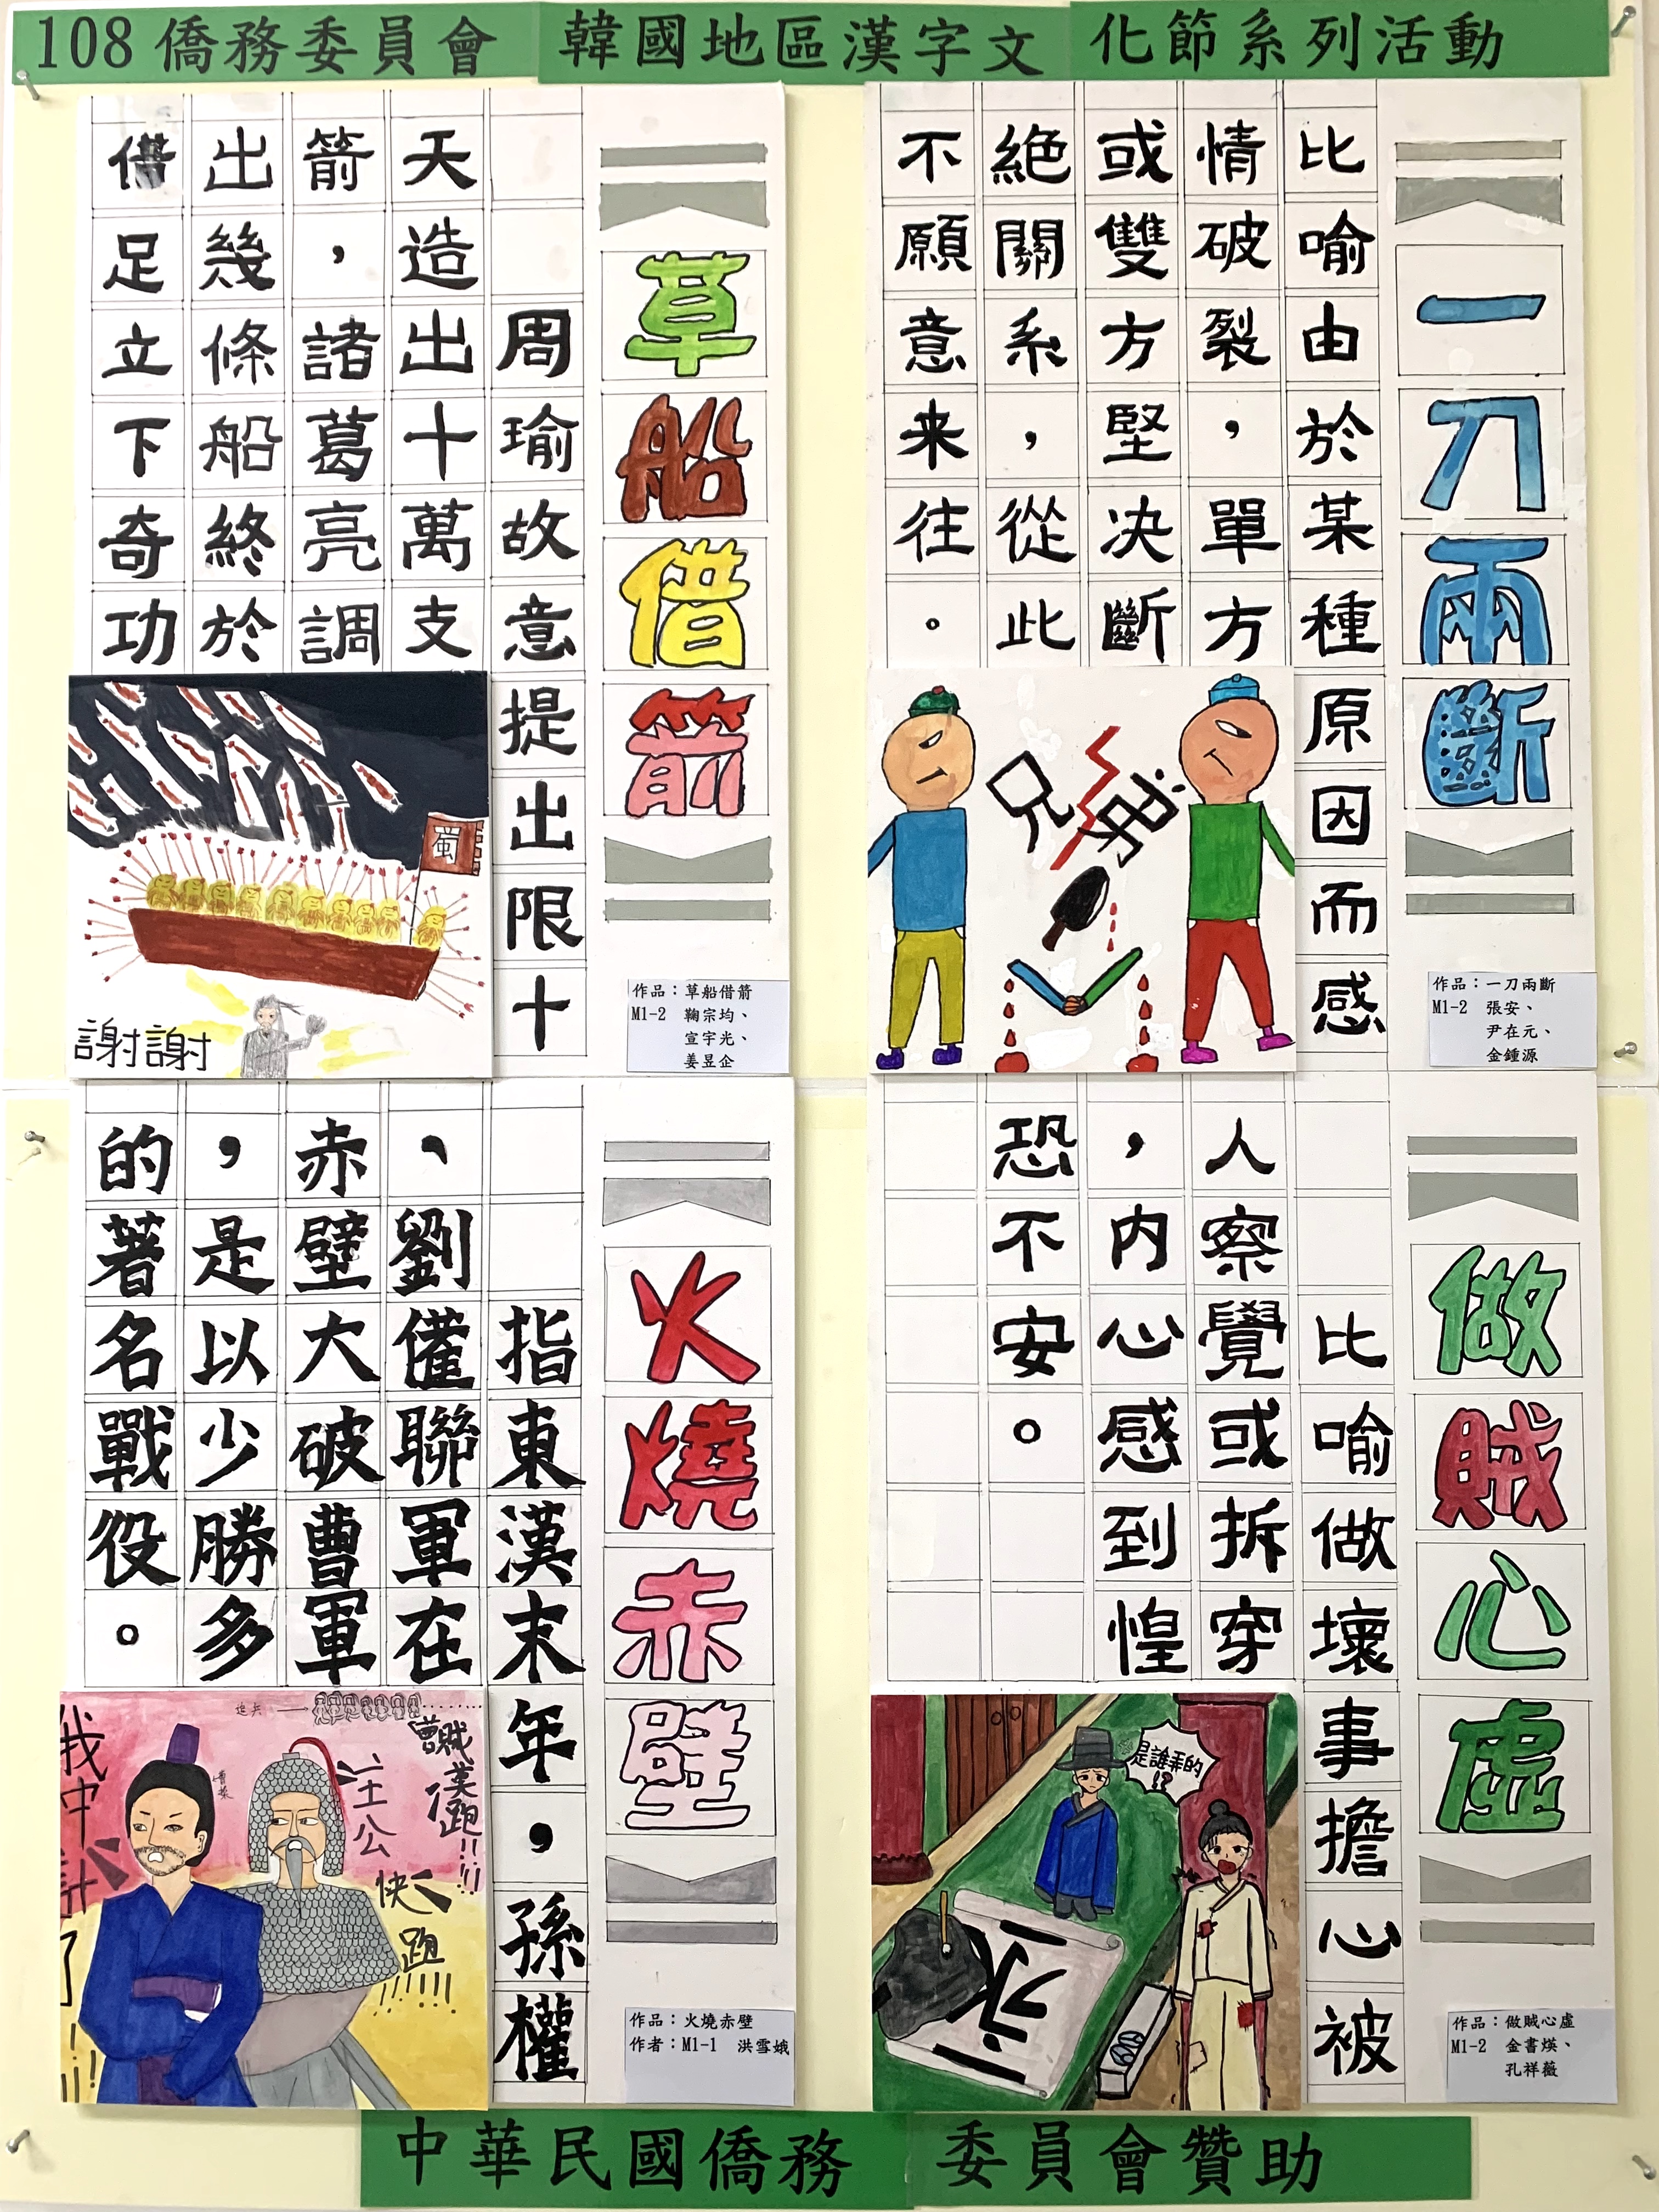 108僑務委員會 韓國地區漢字文化節系列活動
一刀兩斷
比喻由於某種原因而感
情破裂，單方
或雙方堅决斷
絕關系，從此
不願意来往。
兄弟
作品：一刀兩斷
M1-2 張安、
尹在元、
金鍾源
草船借箭
周瑜故意提出限十
天造出十萬支
箭，諸葛亮調
出幾條船終於
借足立下奇功
蜀
謝謝
作品：草船借箭
M1-2 鞠宗均、
宣宇光、
姜昱企
做賊心虛
比喻做壞事擔心被
人察覺或拆穿
，内心感到惶
恐不安。
是誰弄的!?
永
作品：做賊心虛
M1-2 金書煐、
孔祥薇
火燒赤壁
指東漢末年，孫權
、劉備聯軍在
赤壁大破曹軍
，是以少勝多
的著名戰役。
追兵
曹賊莫跑!!!!
主公
快跑!!!!!
曹操
我中計了!!!!
作品：火燒赤壁
作者：M1-1 洪雪娥
中華民國僑務委員會贊助